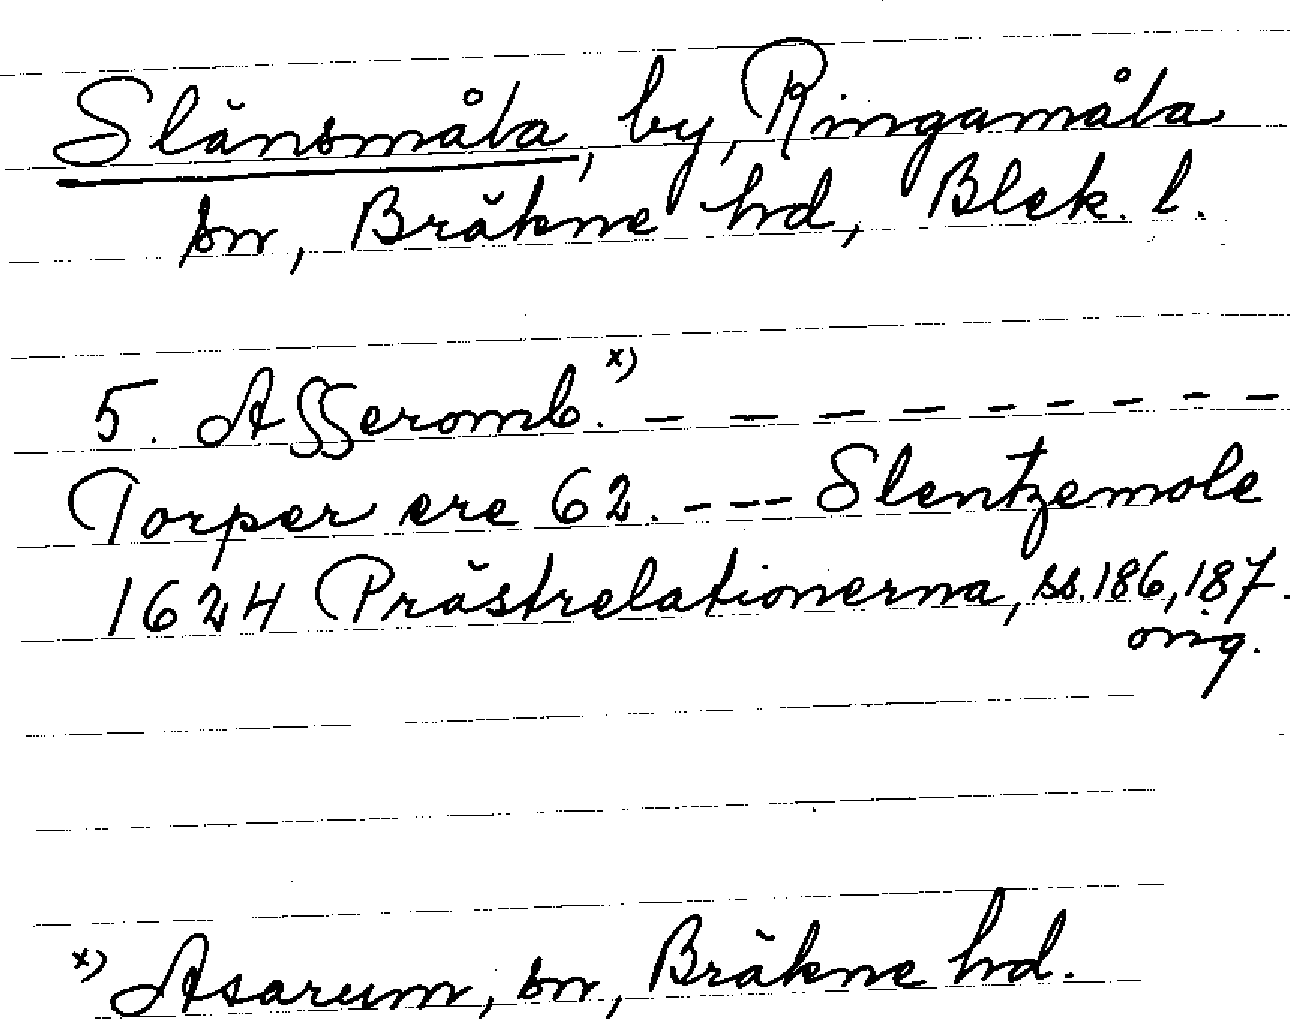 Slänsmåla, by, Ringamåla
sn, Bräkne hd, Blek. l.
5. Asseromb.x) – – – – – – – –
Torper ere 62. - - - Slentzemole
1624 Prästrelationerna, ss. 186, 187.
orig.
x) Asarum, sn, Bräkne hd.